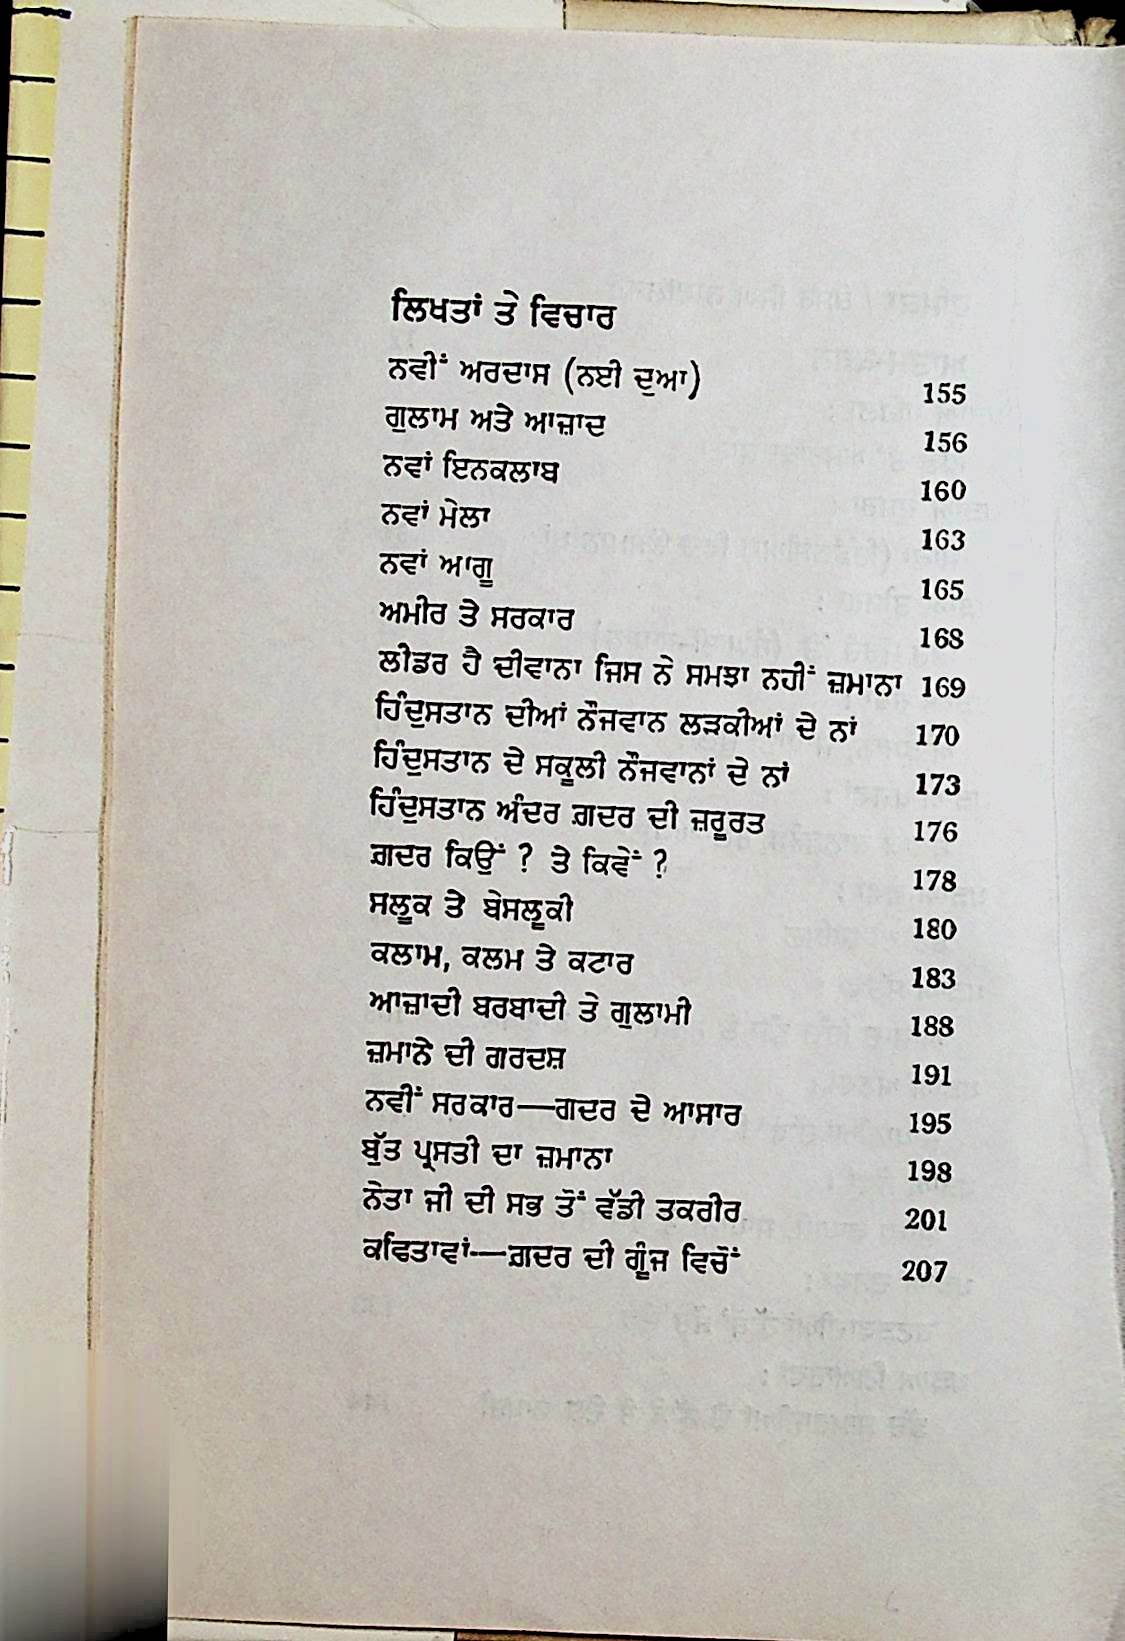 ਲਿਖਤਾਂ ਤੇ ਵਿਚਾਰ
ਨਵੀਂ ਅਰਦਾਸ (ਨਈ ਦੁਆ) 155
ਗੁਲਾਮ ਅਤੇ ਆਜ਼ਾਦ 156
ਨਵਾਂ ਇਨਕਲਾਬ 160
ਨਵਾਂ ਮੇਲਾ 163
ਨਵਾਂ ਆਗੂ 165
ਅਮੀਰ ਤੇ ਸਰਕਾਰ 168
ਲੀਡਰ ਹੈ ਦੀਵਾਨਾ ਜਿਸ ਨੇ ਸਮਝਾ ਨਹੀਂ ਜ਼ਮਾਨਾ 169
ਹਿੰਦੁਸਤਾਨ ਦੀਆਂ ਨੌਜਵਾਨ ਲੜਕੀਆਂ ਦੇ ਨਾਂ 170
ਹਿੰਦੁਸਤਾਨ ਦੇ ਸਕੂਲੀ ਨੌਜਵਾਨਾਂ ਦੇ ਨਾਂ 173
ਹਿੰਦੁਸਤਾਨ ਅੰਦਰ ਗ਼ਦਰ ਦੀ ਜ਼ਰੂਰਤ 176
ਗ਼ਦਰ ਕਿਉਂ ? ਤੇ ਕਿਵੇਂ ? 178
ਸਲੂਕ ਤੇ ਬੇਸਲੂਕੀ 180
ਕਲਾਮ, ਕਲਮ ਤੇ ਕਟਾਰ 183
ਆਜ਼ਾਦੀ ਬਰਬਾਦੀ ਤੇ ਗੁਲਾਮੀ 188
ਜ਼ਮਾਨੇ ਦੀ ਗਰਦਸ਼ 191
ਨਵੀਂ ਸਰਕਾਰ—ਗਦਰ ਦੇ ਆਸਾਰ 195
ਬੁੱਤ ਪ੍ਰਸਤੀ ਦਾ ਜ਼ਮਾਨਾ 198
ਨੇਤਾ ਜੀ ਦੀ ਸਭ ਤੋਂ ਵੱਡੀ ਤਕਰੀਰ 201
ਕਵਿਤਾਵਾਂ—ਗ਼ਦਰ ਦੀ ਗੂੰਜ ਵਿਚੋਂ 207